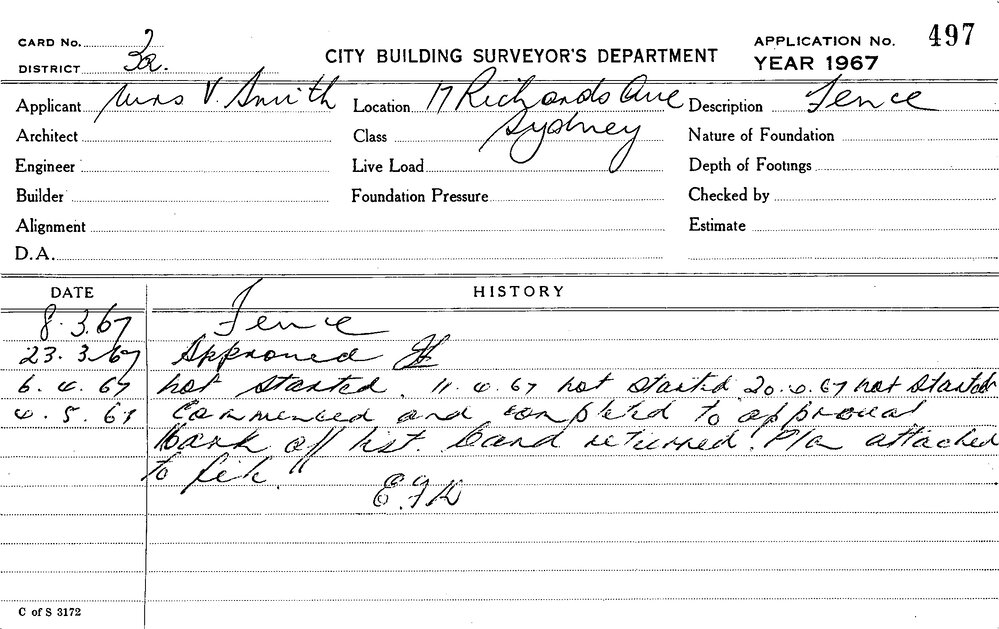 CARD No. 2
DISTRICT 3a.
CITY BUILDING SURVEYOR'S DEPARTMENT
APPLICATION No. 497
YEAR 1967
Applicant Mrs V. Smith Location 17 Richards Ave Description Fence
Architect Class Sydney Nature of Foundation
Engineer Live Load Depth of Footings
Builder Foundation Pressure Checked by
Alignment Estimate
D.A.
DATE HISTORY
8.3.67 Fence
23.3.67 Approved
6.4.67 not started. 11.4.67 not started 20.4.67 not started
4.5.67 Commenced and completed to approval
Mark off list. Card returned. Plan attached
to file.
E.F.K
C of S 3172